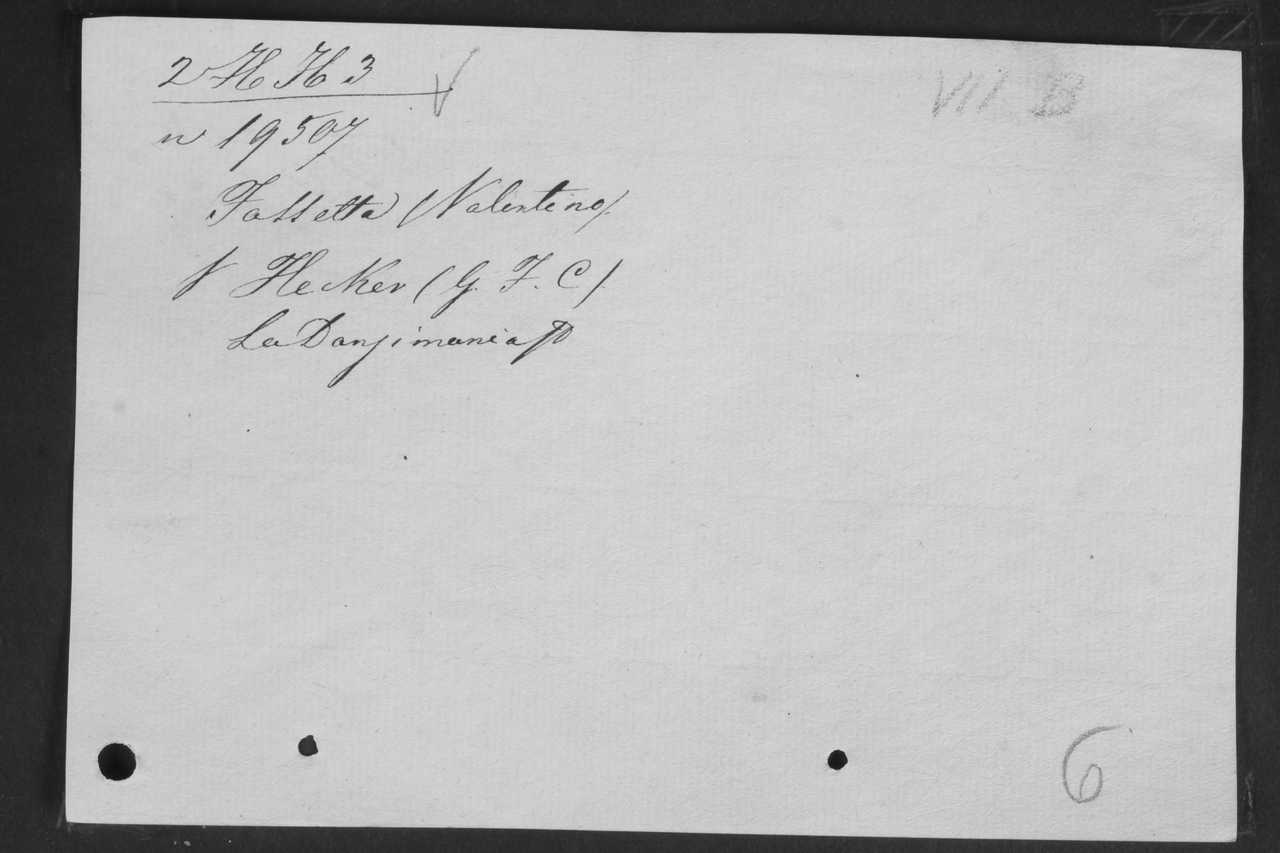 2 H H 3
VII B
n 19507
Fassetta (Valentino).
Hecker (G. F. C).
La Danzimania
6